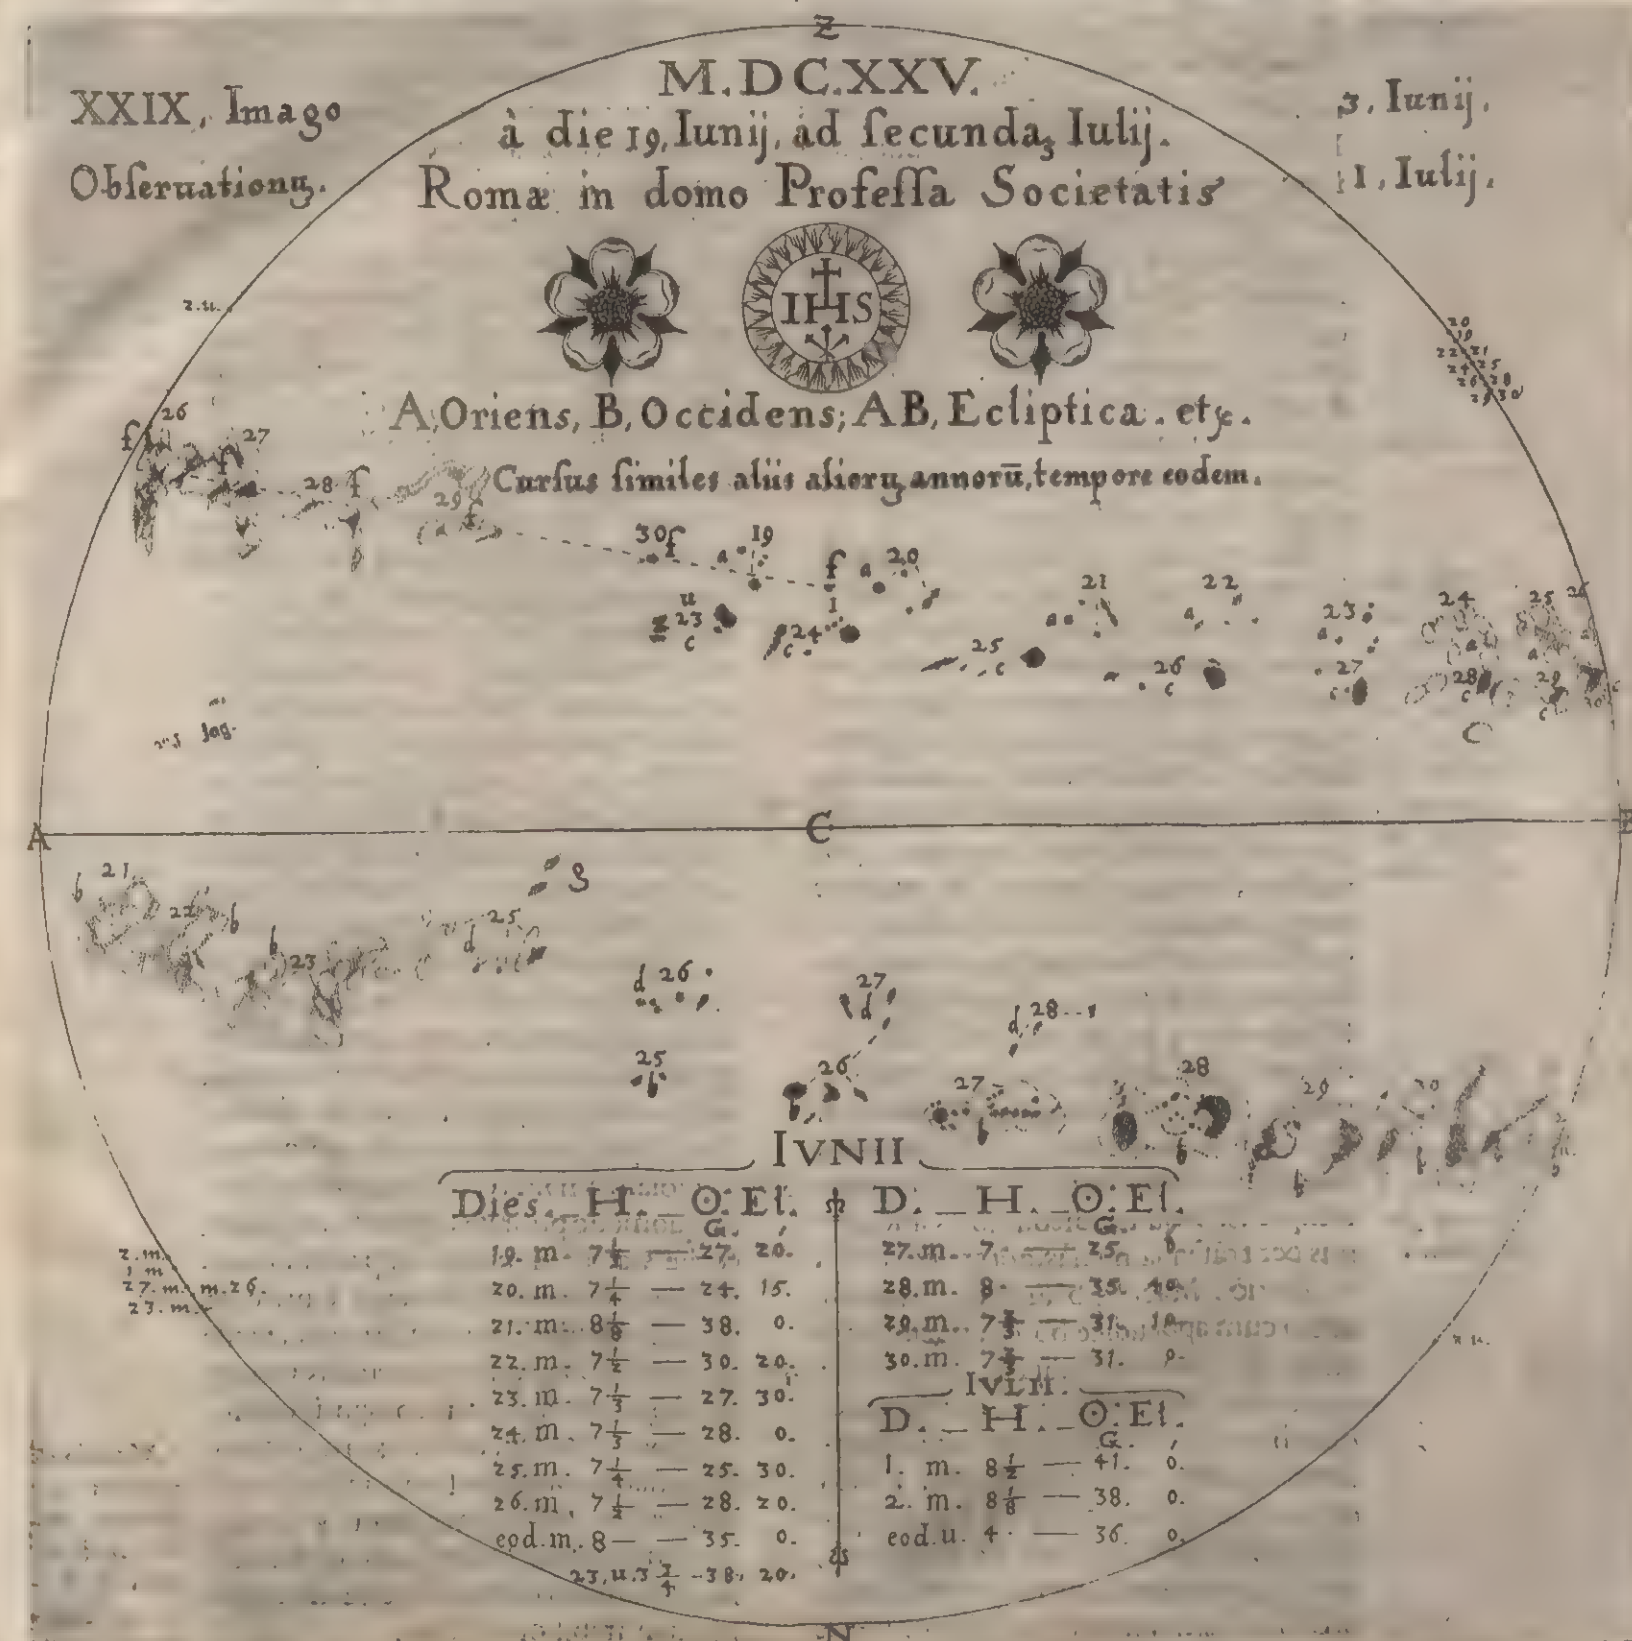 Z
M.DC.XXV.
XXIX, Imago
Obſeruationũ.
3, Iunij.
1, Iulij.
à die 19, Iunij, ad ſecundaʒ Iulij.
Romæ in domo Profeſſa Societatis
IHS
z.u.
20
19
22 21
24 25
26 28
29 30
A, Oriens, B, Occidens; AB, Ecliptica. etc.
Curſus ſimiles aliis aliorũ annorū, tempore eodem.
f 26
27 f
28 f
29 f
30 f
a 19
f
1
a 20
21
a
22
a
23
a
24
a
25
a
26
u
z 23
c
24
c
25
c
26
c
27
c
28
c
29
c
30
A C B
b 21
22 b
b 23
25
d
g
d 26
27
d
d 28
25
b
26
b
27
b
28
b
29
b
30
b
IVNII
Dies. H. ☉. El.
G. ,
19. m. 7 1/2 — 27. 20.
20. m. 7 1/4 — 24. 15.
21. m. 8 1/8 — 38. 0.
22. m. 7 1/2 — 30. 20.
23. m. 7 1/3 — 27. 30.
24. m. 7 1/3 — 28. 0.
25. m. 7 1/4 — 25. 30.
26. m. 7 1/2 — 28. 20.
eod. m. 8 — — 35. 0.
23. u. 3 3/4 - 38. 20.
D. H. ☉. El.
G. ,
27. m. 7. — 25.
28. m. 8. — 35. 40.
29. m. 7 2/3 — 31. 10.
30. m. 7 2/3 — 31. 0.
IVLII.
D. H. ☉. El.
G. ,
1. m. 8 1/2 — 41. 0.
2. m. 8 1/8 — 38. 0.
eod. u. 4. — 36. 0.
2. m.
1 m
27. m. m. 26.
23. m.
z. u.
N